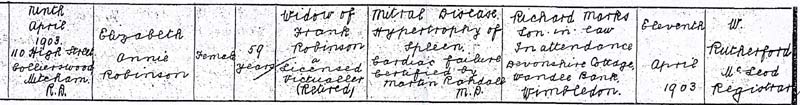 Ninth
April
1903
110 High Street
Collierswood
Mitcham.
R.D.
Elizabeth
Annie
Robinson
Female
59
years
Widow of
Frank
Robinson
a
Licensed
Victualler
(Retired)
Mitral Disease.
Hypertrophy of
Spleen.
Cardiac failure
Certified by
Martin Randall
M.D.
Richard Marks
Son-in-law
In attendance
Devonshire Cottage,
Wandle Bank,
Wimbledon.
Eleventh
April
1903
W.
Rutherford
McLeod
Registrar